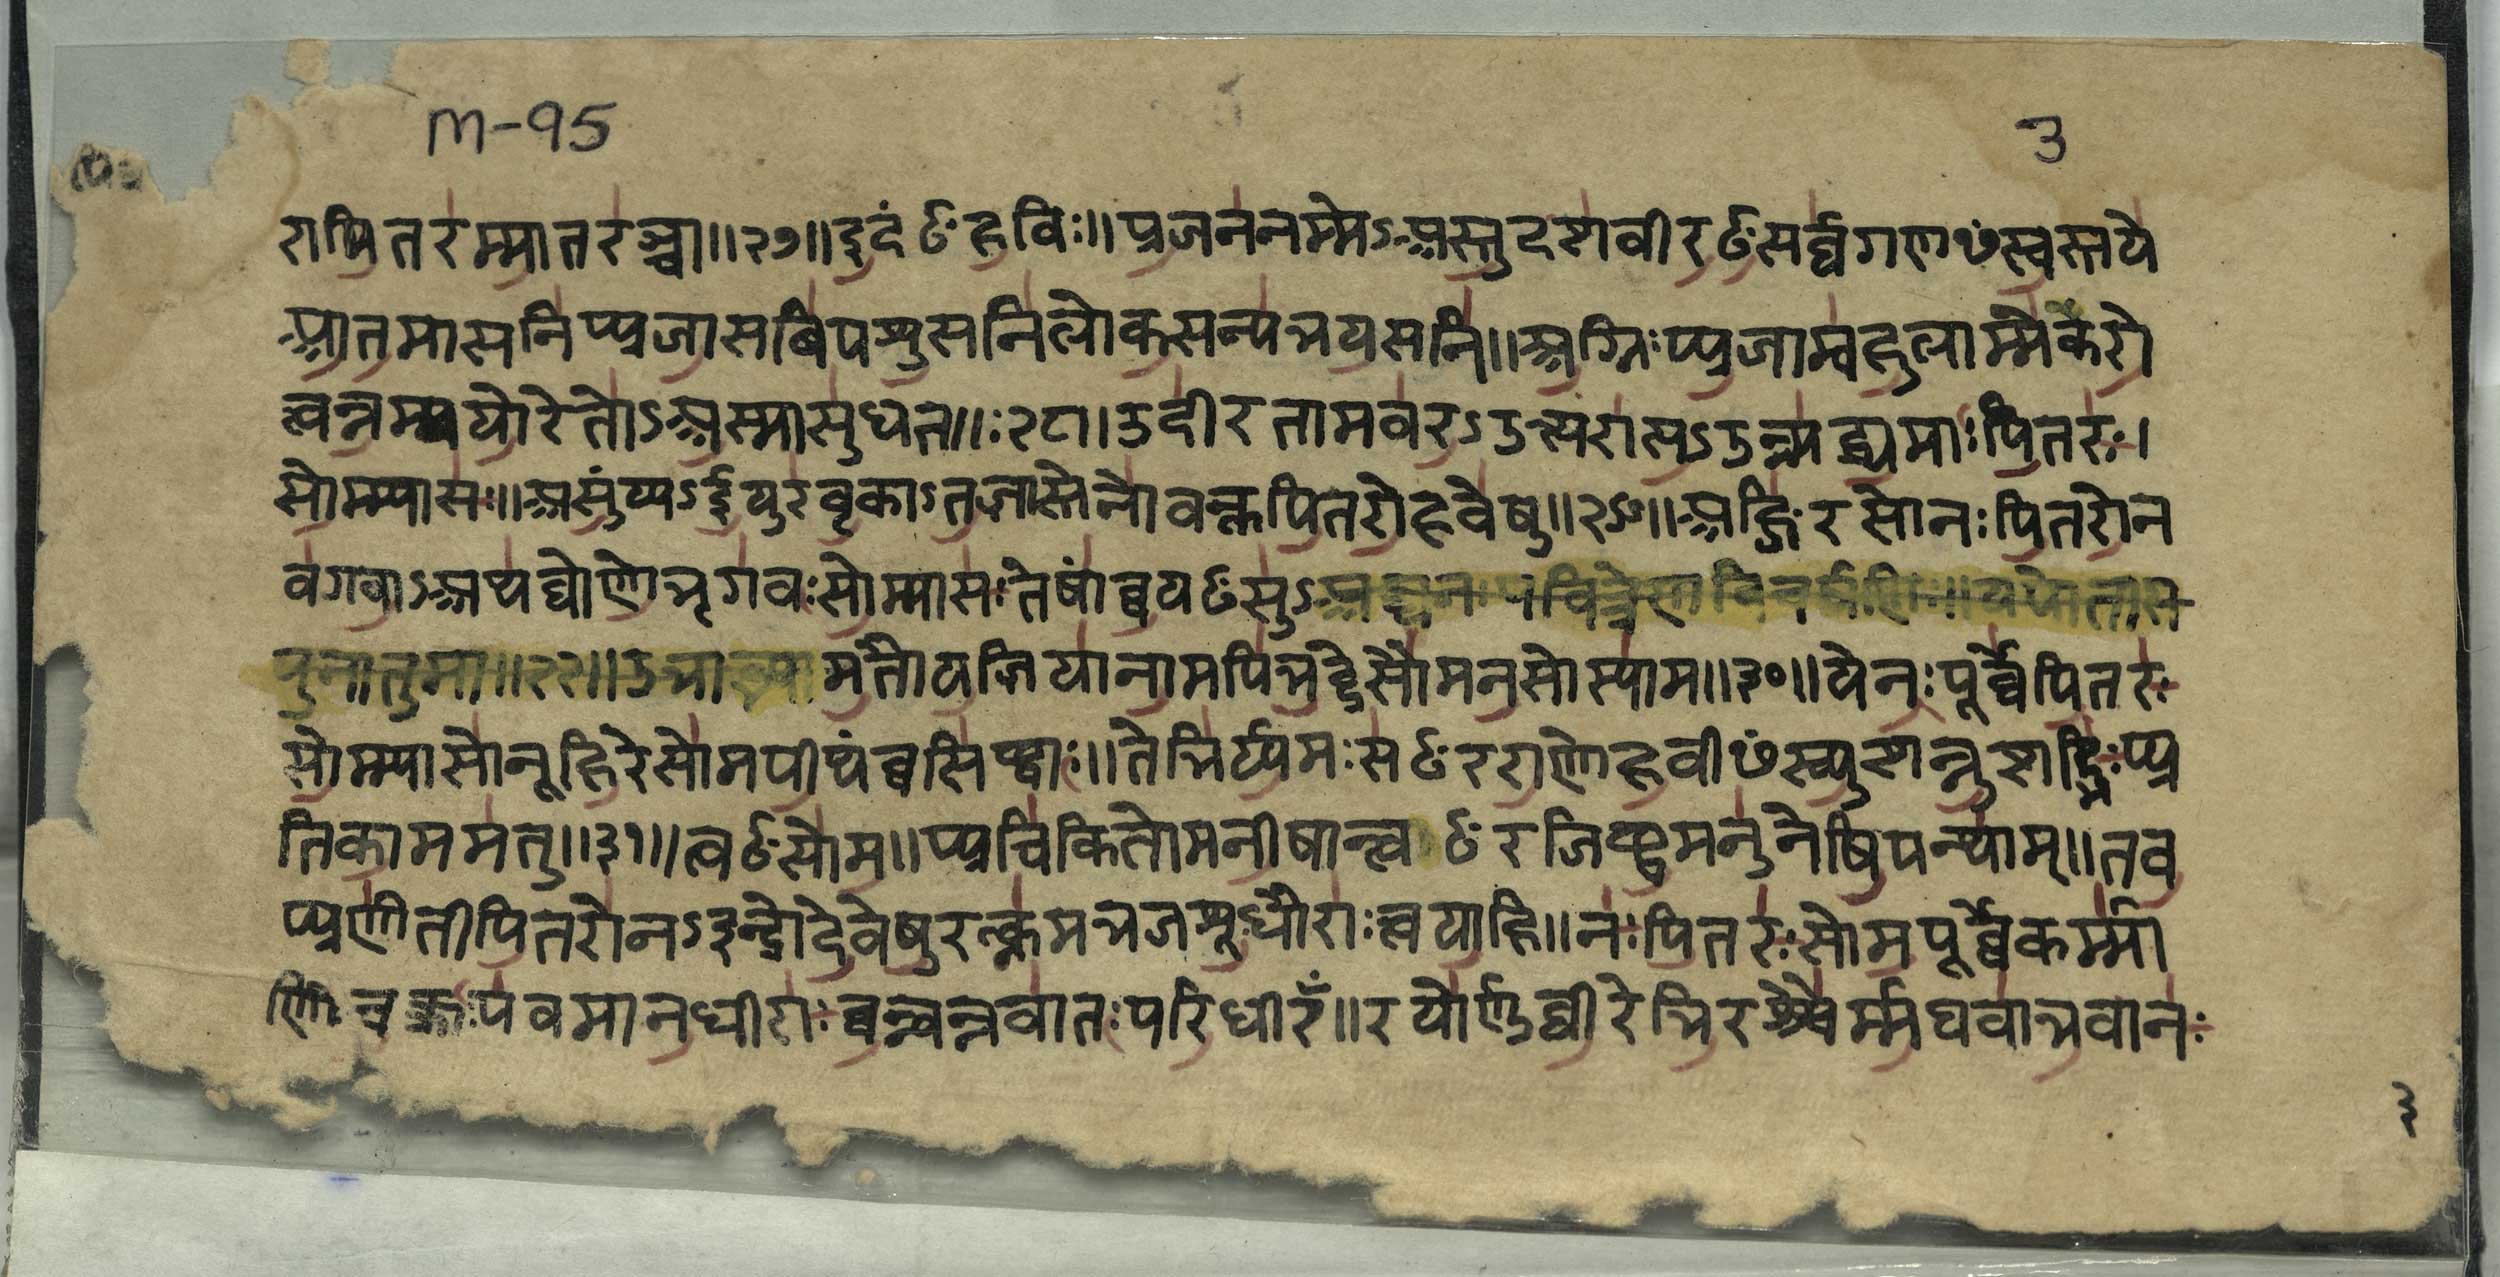 M-95
3
रापितरम्मातरञ्च॥।२७॥इदंᳪहविः॥प्रजननम्मेऽअस्तुदशवीरᳪसर्व्वगणᳪंस्वस्तये
आतमासनिप्प्रजासनिपशुसनिलोकसन्यभयसनि॥अग्निःप्प्रजाम्बहुलाम्मेकरो
त्वन्नम्पयोरेतोऽअस्मासुधत्त॥:२८।उदीरतामवरऽउत्परासऽउन्मद्ध्यमाःपितरः।
सोम्म्यासः॥असुंय्यऽईयुरवृकाऽतज्ञास्तेनोवन्तुपितरोहवेषु॥२९॥अङ्गिरसोनःपितरोन
वगवाऽअथर्व्वाणोभृगवःसोम्म्यासःतेषांव्वयᳪसु
मतौयज्ञियानामपिभद्द्रेसौमनसोस्याम॥३०॥येनःपूर्व्वेपितरः
सोम्म्यासोनूहिरेसोमपीथंव्वसिष्ठाः॥तेभिर्य्यमःसᳪरराणोहवीᳪंस्युशन्नुशद्भिःप्प्र
तिकाममत्तु॥३१॥त्वᳪसोम॥प्प्रचिकितोमनीषात्त्वᳪरजिष्ठमनुनेषिपन्थाम्॥तव
प्प्रणीतीपितरोनऽइन्द्रोदेवेषुरत्क्नमभजशूर्धीराःत्वयाहि॥नःपितरःसोमपूर्व्वेकर्म्मा
णिचक्क्रुःपवमानधीराःव्वन्वन्नवातःपरिधीरँ॥रयोर्णुव्वीरेभिरश्श्वैर्म्मघवाभवानः
३